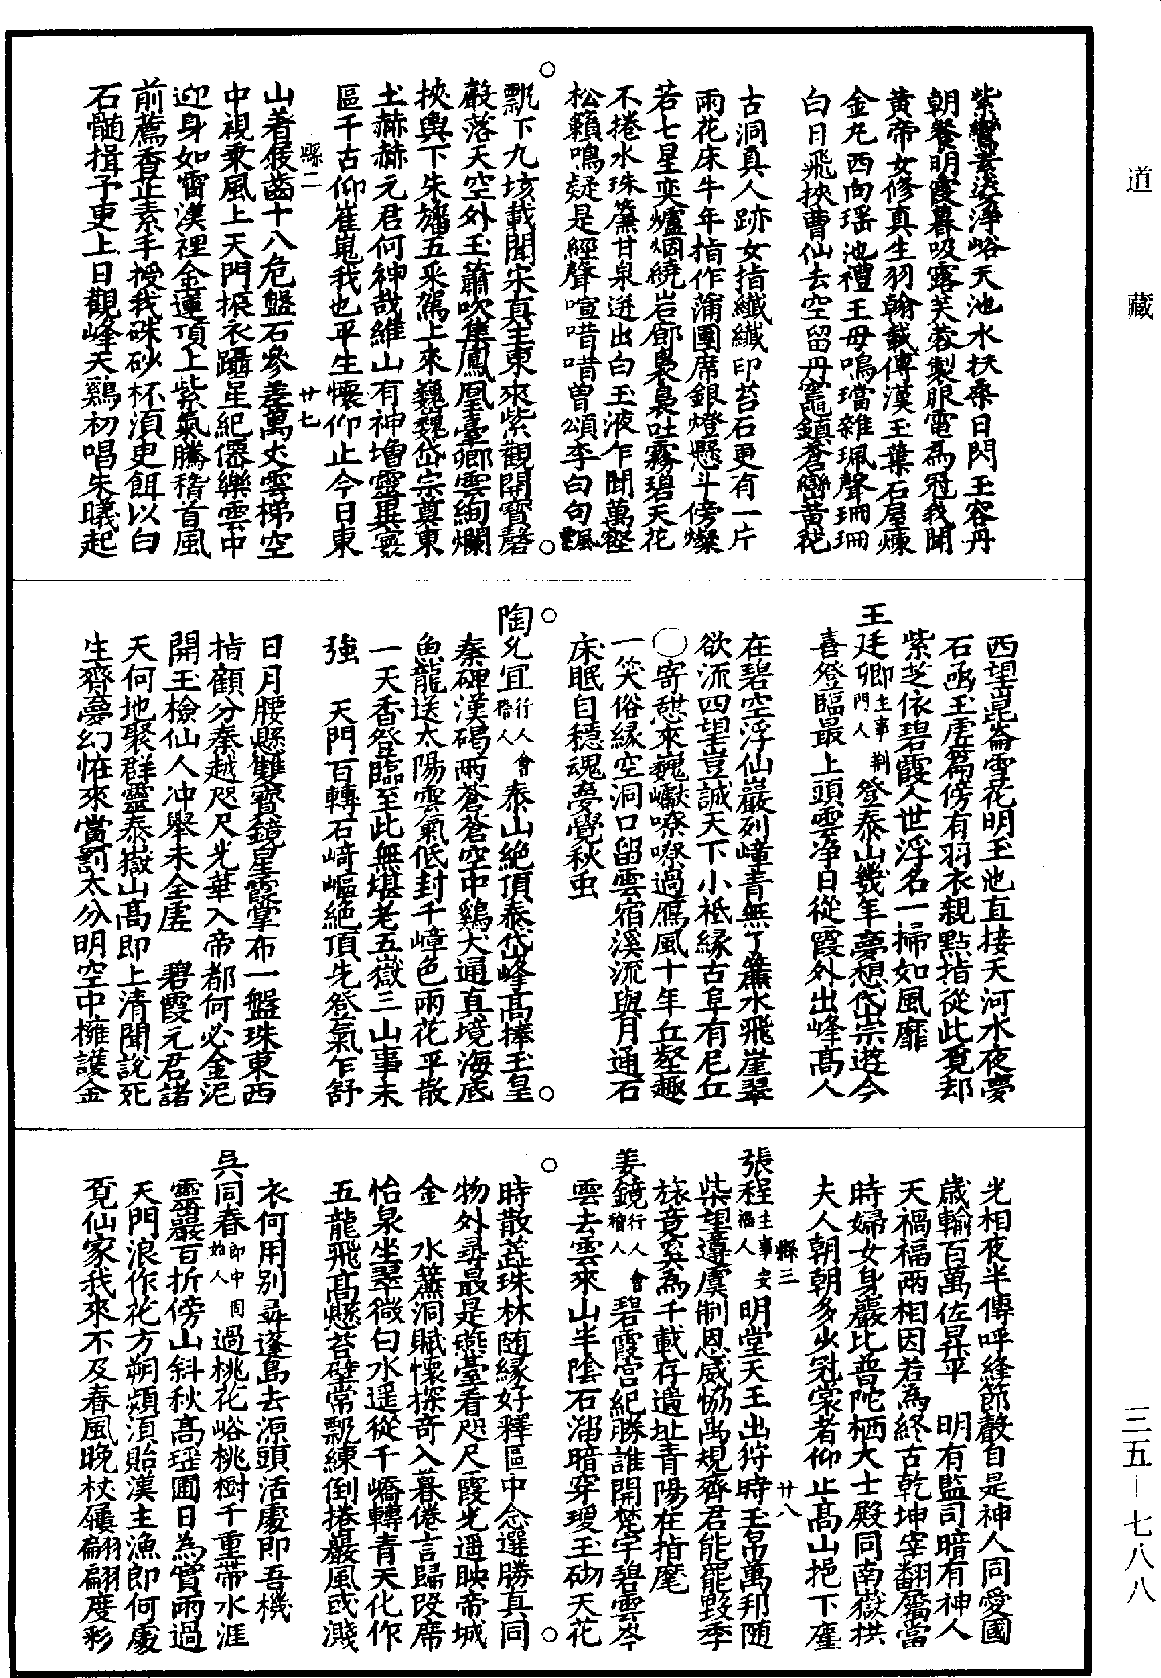 道藏
紫鸞素鸞淨峪天池水扶桑日閃玉容丹
朝餐明霞暮吸露芙蓉製服雲爲冠我聞
黃帝女修真生羽翰載傳漢玉葉石屋煉
金九西向瑤池禮王母鳴璫雜珮聲珊珊
白日飛挾曹仙去空留丹竈鎮蒼巒黃花
古洞真人跡女指纖纖印苔石更有一片
雨花床午年指作蒲團席銀燈懸斗傍燦
若七星奕爐烟繞岩鄮裊裊吐霧碧天花
不捲水珠簾甘泉迸出白玉液乍聞萬壑
松籟鳴疑是經聲喧唶唶曾頌李白句飄
飄下九垓載聞宋真主東來紫觀開寶磬
嚴落天空外玉蕭吹集鳳凰臺卿雲絢爛
挾輿下朱旛五采駕上來巍巍岱宗奠東
土赫赫元君何神哉維山有神增靈異寰
區千古仰崔嵬我也平生懷仰止今日東
縣二
廿七
山着屐齒十八危盤石參差萬丈雲梯空
中視乘風上天門振衣躡星紀僊樂雲中
迎身如霄漢裡金蓮頂上紫氣騰稽首風
前薦香芷素手授我硃砂杯湏臾餌以白
石髓揖予更上日觀峰天鷄初唱朱曦起
西望崑崙雪花明玉池直接天河水夜夢
石函玉虛篇傍有羽衣親點指從此覓却
紫芝依碧霞人世浮名一掃如風靡
王廷卿主事荆門人登泰山幾年夢想岱宗遊今
喜登臨最上頭雲淨日從霞外出峰高人
在碧空浮仙巖列嶂青無了簾水飛崖翠
欲流四望豈誠天下小祇緣古阜有尼丘
○寄憇來巍巘嘹嘹過鴈風十年丘壑趣
一笑俗緣空洞口留雲宿溪流與月通石
床眠自穩魂夢覺秋虫
陶允宜行人會稽人泰山絕頂泰岱峰高捧玉皇
秦碑漢碣兩蒼蒼空中鷄犬通真境海底
魚龍送太陽雲氣低封千嶂色雨花平散
一天香登臨至此無堪老五嶽三山事未
強　天門百轉石崎嶇絕頂先登氣乍舒
日月腰懸雙寶鏡星霞掌布一盤珠東西
指顧分秦越咫尺光華入帝都何必金泥
開玉檢仙人冲舉未全虛　碧霞元君諸
天何地聚群靈泰嶽山高即上清聞說死
生齊夢幻恠來賞罰太分明空中擁護金
光相夜半傳呼絳節聲自是神人同愛國
歲輸百萬佐昇平　明有監司暗有神人
天禍福兩相因若為終古乾坤宰翻屬當
時婦女身嚴比普陀栖大士殿同南嶽拱
夫人朝朝多少冠裳者仰止高山挹下塵
縣三
廿八
張程主事安福人明堂天王出狩時玉帛萬邦随
柴望遵虞制恩威協禹規齊君能罷毀季
旅竟奚為千載存遺址青陽在指麾
姜鏡行人會稽人碧霞宮紀勝誰開梵宇碧雲岑
雲去雲來山半陰石溜暗穿璦玉砌天花
時散蕋珠林随緣好釋區中念選勝真同
物外尋最是燕臺看咫尺霞光遥映帝城
金　水簾洞賦懷探奇入暮倦言歸跂席
怡泉坐翠微白水遥從千嶠轉青天化作
五龍飛高懸苔壁常飄練倒捲巖風或濺
衣何用别尋蓬島去源頭活處即吾機
吳同春郎中固始人過桃花峪桃樹千重帶水涯
靈巖百折傍山斜秋高瑶圃日為實雨過
天門浪作花方朔頻湏貽漢主漁郎何處
覓仙家我來不及春風晚杖屨翩翩度彩
三五—七八八